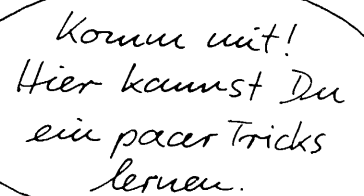 Komm mit!
Hier kannst Du
ein pacer Tricks
lernen.